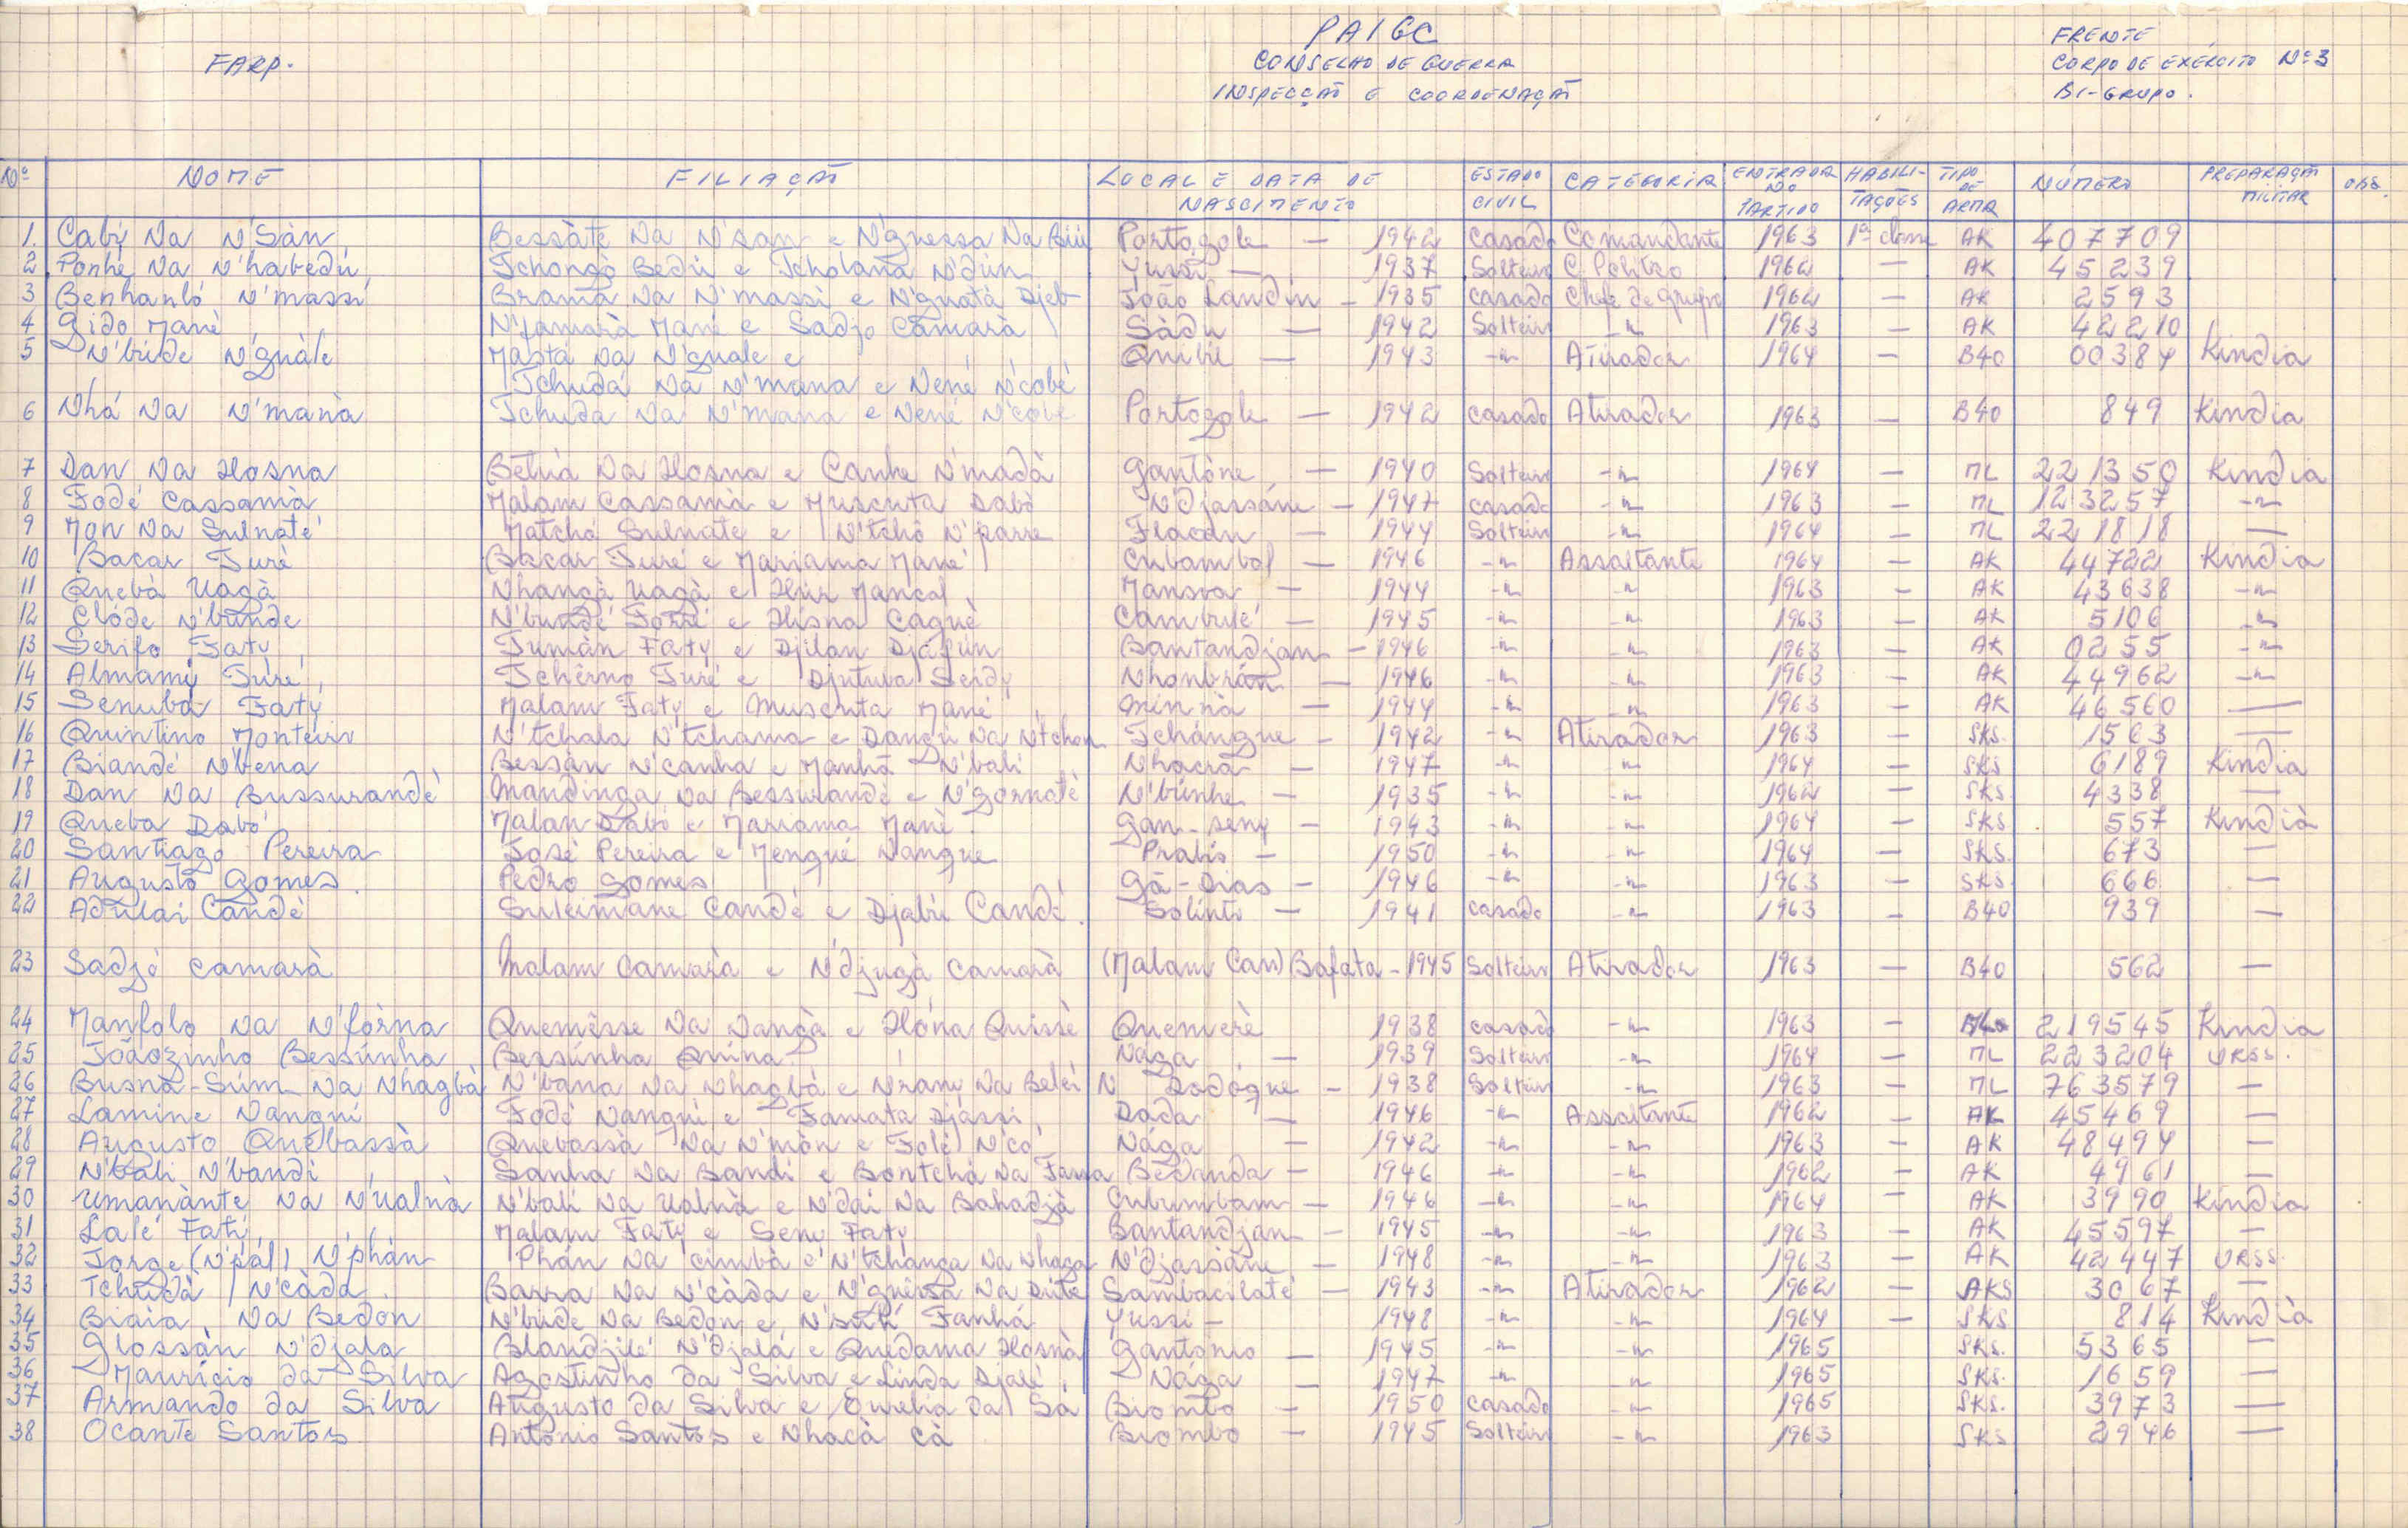 PAIGC
FARP.
CONSELHO DE GUERRA
INSPECÇÃO E COORDENAÇÃO
FRENTE
CORPO DE EXÉRCITO Nº 3
BI-GRUPO.
Nº NOME FILIAÇÃO LOCAL E DATA DE NASCIMENTO ESTADO CIVIL CATEGORIA ENTRADA NO PARTIDO HABILITAÇÕES TIPO DE ARMA NÚMERO PREPARAÇÃO MILITAR OBS.
1. Cabi Na N'Sàn Bessàte Na N'san e N'guessa Na Biú Portogole — 1942 casado Comandante 1963 1ª classe AK 407709
2 Ponhé Na N'habedú Tchongò Bedú e Tcholana N'dún Yussi — 1937 Solteiro C. Politico 1962 — AK 45239
3 Benhanló N'massi Bramà Na N'massi e N'guatà Djeb João Landin — 1935 casado Chefe de grupo 1962 — AK 2593
4 Gido Mané N'famarà Mané e Sadjo Camarà Sàdu — 1942 Solteiro -"- 1963 — AK 42210
5 N'búde N'guàlé Mastá Na N'guale e Quebil — 1943 -"- Atirador 1964 — B40 00384 Kindia
Tchudá Na N'mana e Nené N'cobé
6 Nhá Na N'manà Tchuda Na N'Mana e Nené N'cobé Portogole — 1942 casado Atirador 1963 — B40 849 Kindia
7 Dan Na Hosna Betná Na Hosna e Canhe N'madà Gantóne — 1940 Solteiro -"- 1964 — ML 221350 Kindia
8 Fodé Cassamà Malam Cassamà e Muscuta Dabò N'djassáne — 1947 casado -"- 1963 — ML 123257 -"-
9 Mon Na Sulnaté Matchá Sulnate e N'tchó N'parre Flacan — 1944 Solteiro -"- 1964 — ML 221818 —
10 Bacar Turé Bacar Turé e Mariama Mané Cubambol — 1946 -"- Assaltante 1964 — AK 44722 Kindia
11 Quebà Uagà Nhangà Uagà e Húr Mancal Mansoa — 1944 -"- -"- 1963 — AK 43638 -"-
12 Clóde N'bunde N'bundé Forré e Hisna Cagué Cambulé — 1945 -"- -"- 1963 — AK 5106 -"-
13 Serifo Faty Tumàn Faty e Djilan Djàfún Bantandjan — 1946 -"- -"- 1963 — AK 0255 -"-
14 Almamy Turé Tchêrno Turé e Djutuba Seidy Nhonbràn — 1946 -"- -"- 1963 — AK 44962 -"-
15 Senuba Faty Malam Faty e Muscuta Mané Minnà — 1944 -"- -"- 1963 — AK 46560 —
16 Quintino Monteiro N'tchala N'tchama e Dangu Na N'tchon Tchángue — 1942 -"- Atirador 1963 — SKS. 1563 —
17 Biandé N'bena Bessàn N'canha e Manhã N'bali Nhacra — 1947 -"- -"- 1964 — SKS 6189 Kindia
18 Dan Na Bussurandé Mandinga Na Bessurandé e N'gornaté N'búnhe — 1935 -"- -"- 1962 — SKS 4338 —
19 Queba Dabó Malan Dabó e Mariama Mané Gan-seny — 1943 -"- -"- 1964 — SKS 557 Kindià
20 Santiago Pereira José Pereira e Mengué Nangue Prabis — 1950 -"- -"- 1964 — SKS. 673 —
21 Augusto Gomes. Pedro Gomes Gã-Dias — 1946 -"- -"- 1963 — SKS 666 —
22 Adulai Candé Suleimane Candé e Djabú Candé. Solinto — 1941 casado -"- 1963 — B40 939 —
23 Sadjó Camarà Malam Camarà e N'djugà Camarà (Malam Can) Bafata — 1945 Solteiro Atirador 1963 — B40 562 —
24 Manfolo Na N'fòrna Quemêsse Na Dangà e Hóna Quissé Quenverè 1938 casado -"- 1963 — 219545 Kindia
25 Joãozinho Bessúnha Bessúnha Quina Nága — 1939 Solteiro -"- 1964 — ML 223204 URSS.
26 Busnà-Súm Na Nhagbà N'bana Na Nhagbà e N'rany Na Belei N Dodógue — 1938 Solteiro -"- 1963 — ML 763579 —
27 Lamine Nangui Fodé Nangui e Famata Djassi Dada — 1946 -"- Assaltante 1962 — AK 45469 —
28 Augusto Quebassà Quebassà Na N'mòn e Folé N'có Nága — 1942 -"- -"- 1963 — AK 48494 —
29 N'bali N'bandi Sanha Na Bandi e Bontchà Na Fanna Bedanda — 1946 -"- -"- 1962 — AK 4961 —
30 Umanànte Na N'ualnà N'bali Na Ualnà e N'dai Na Bahadjà Cubumbam — 1946 -"- -"- 1964 — AK 3990 Kindia
31 Lalé Fati Malam Faty e Seny Faty Bantandjan — 1945 -"- -"- 1963 — AK 45597 —
32 Jorge (N'pal) N'phán Phán Na Cimbà e N'tchanga Na Nhaga N'djassane — 1948 -"- -"- 1963 — AK 42447 URSS.
33 Tchudà N'càda Barra Na N'càda e N'guêssa Na Dúte Sambacilaté — 1943 -"- Atirador 1962 — AKS 3067 —
34 Biaia Na Bedon N'búde Na Bedon e N'suk Fanhà Yussi — 1948 -"- -"- 1964 — SKS 814 Kindià
35 Glossàn N'djala Blandjilé N'djalá e Quedama Hosnà Gantónio — 1945 -"- -"- 1965 SKS. 5365 —
36 Mauricio da Silva Agostinho da Silva e Linda Djaré Nága — 1947 -"- -"- 1965 SKS. 1659 —
37 Armando da Silva Augusto da Silva e Eurélia da Sá Biombo — 1950 casado -"- 1965 SKS. 3973 —
38 Ocante Santos António Santos e Nhacà Cà Biombo — 1945 Solteiro -"- 1963 SKS 2946 —